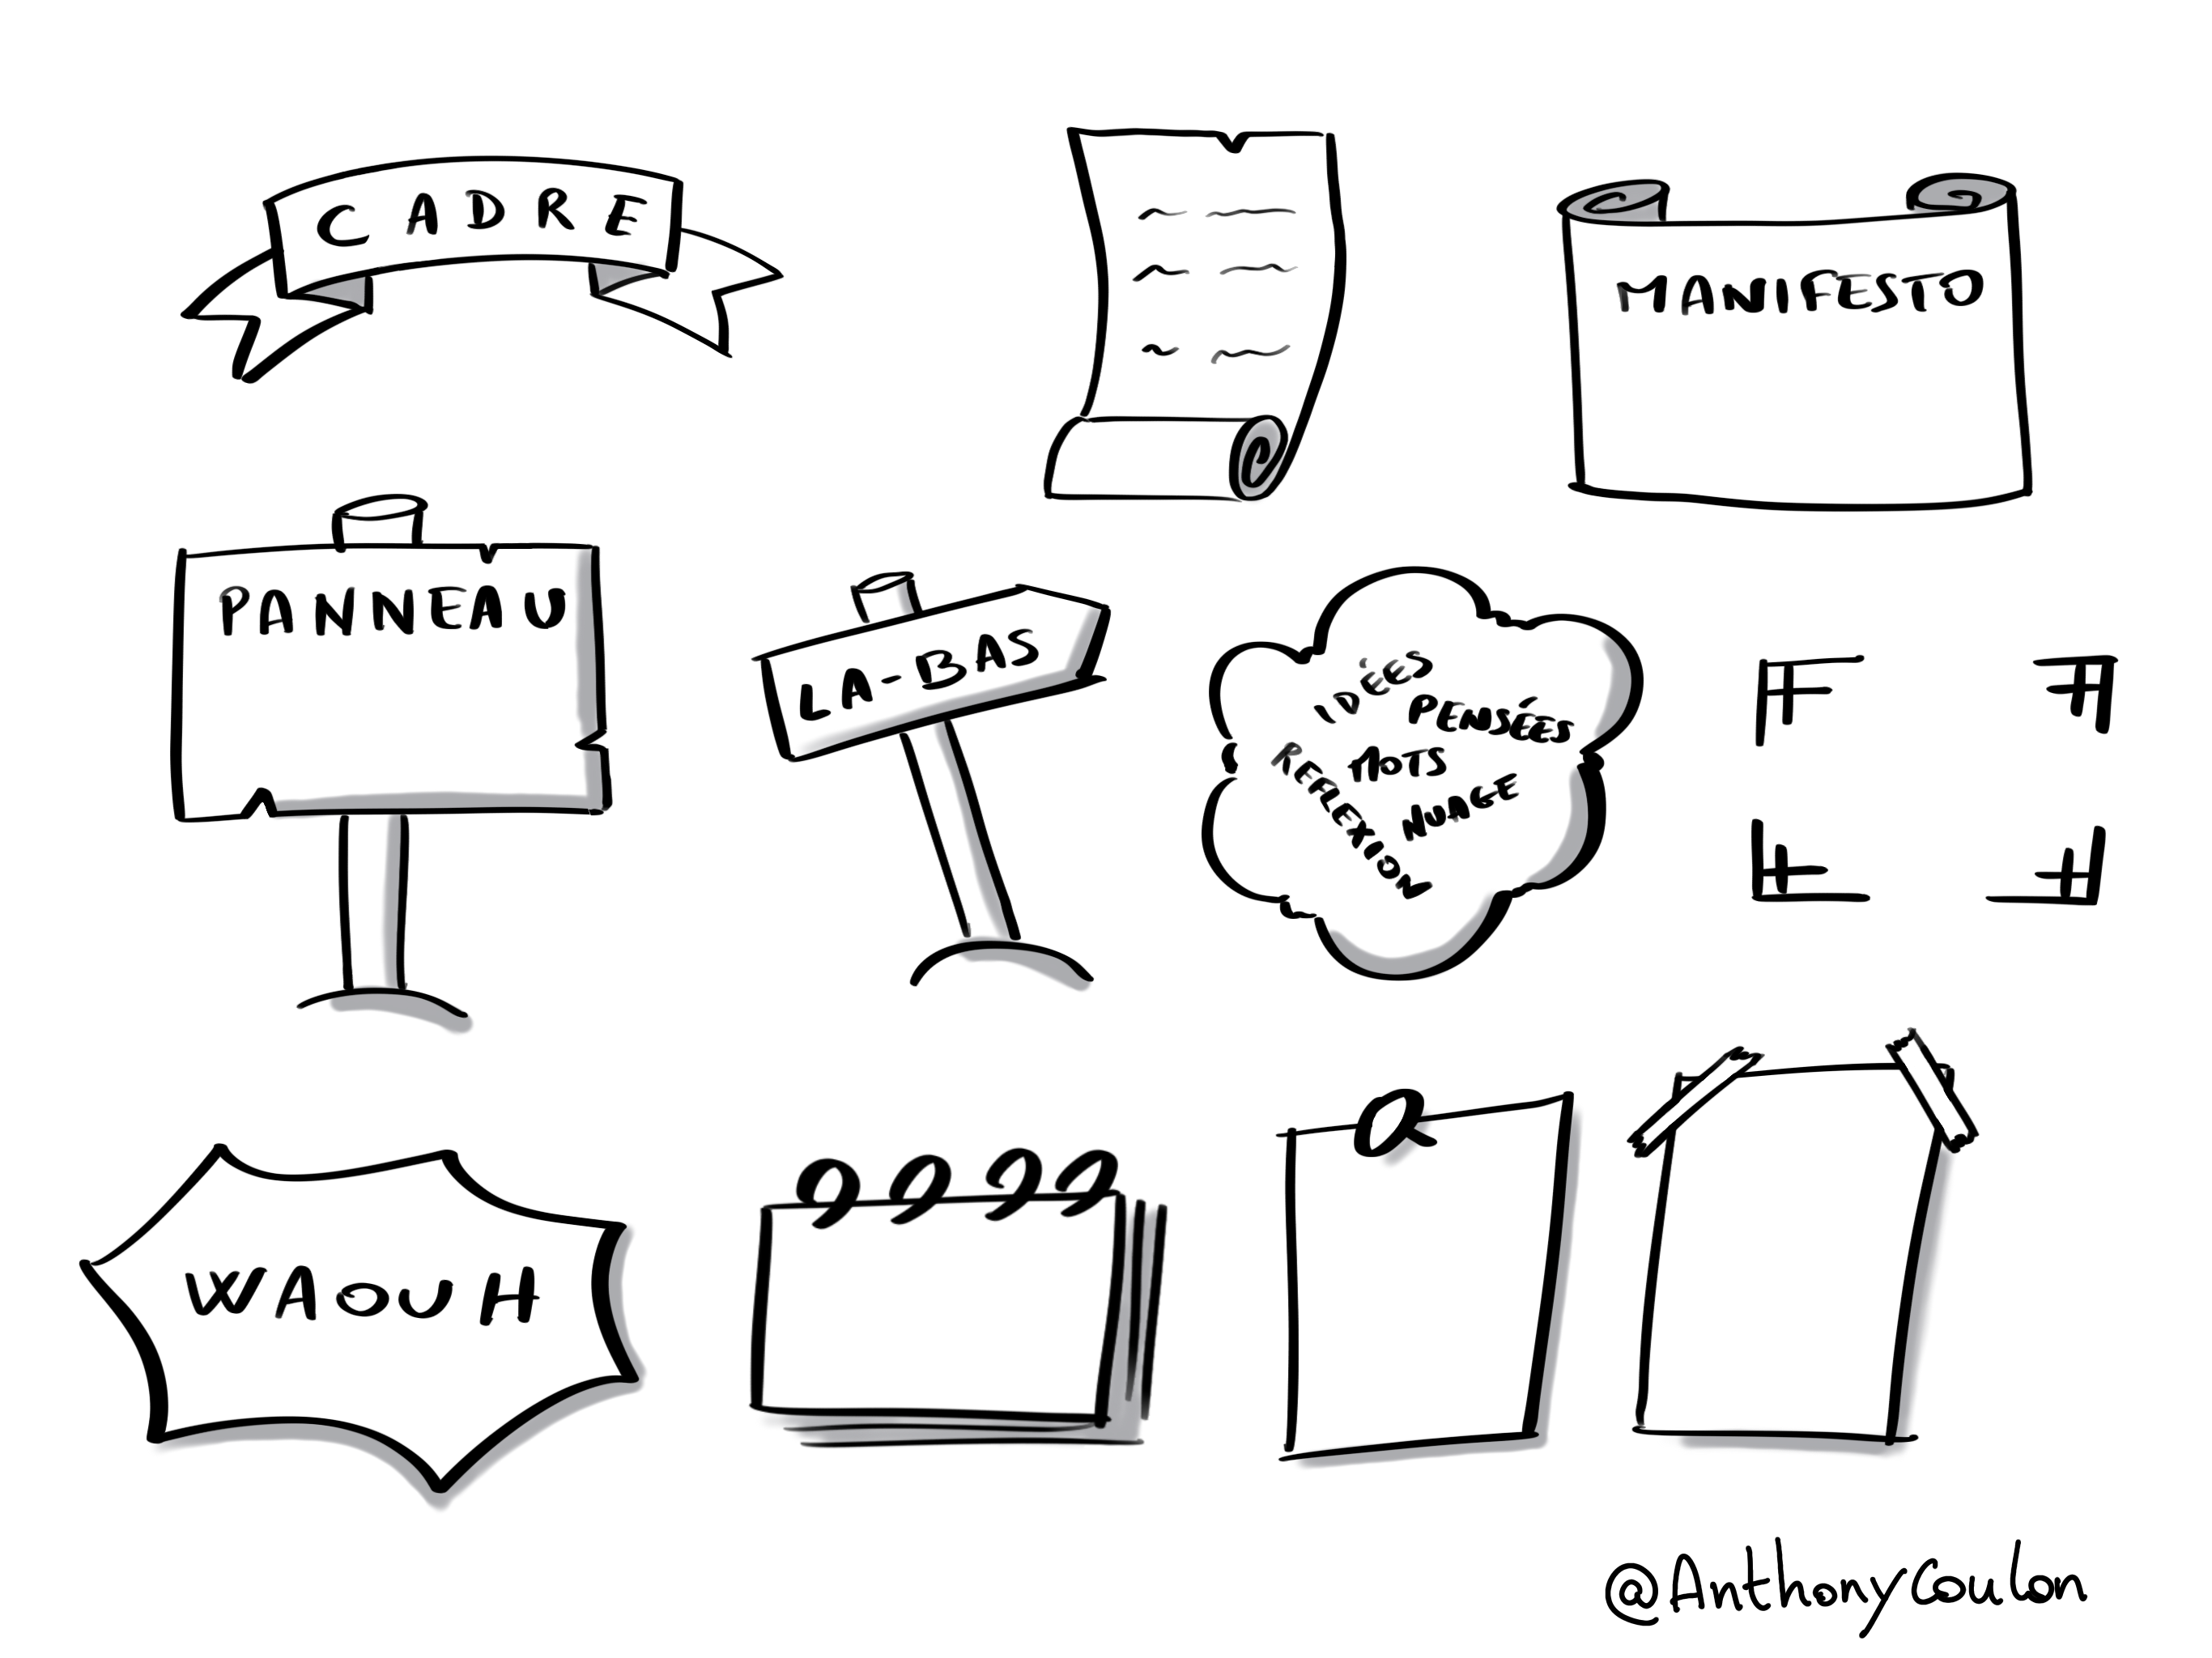 CADRE
MANIFESTO
PANNEAU
LA-BAS
IDÉES
PENSÉES
MOTS
REFLEXION
NUAGE
WAOUH
@AnthonyCoulon